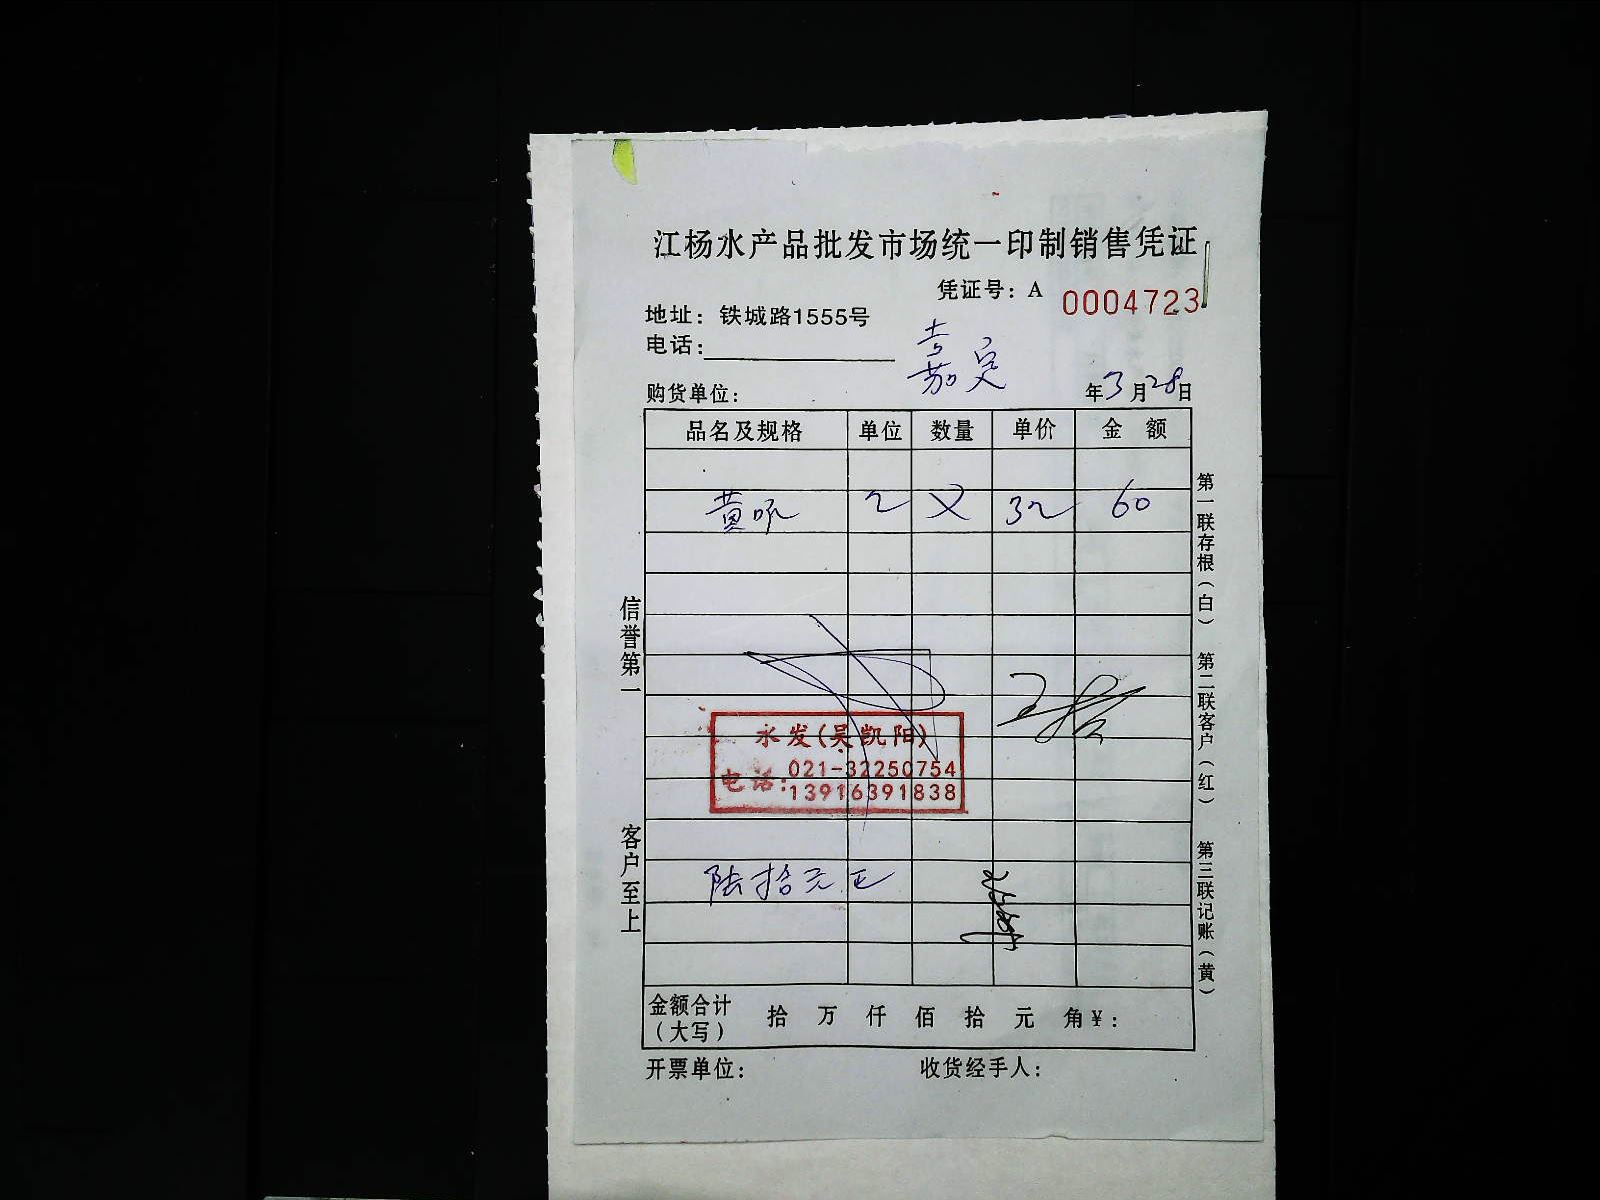 江杨水产品批发市场统一印制销售凭证
凭证号：A 0004723
地址：铁城路1555号
电话：
嘉定
购货单位：
年3月28日
品名及规格 单位 数量 单价 金额
黄 60
水发(吴凯阳)
电话：021-32250754
13916391838
陆拾元正
金额合计（大写） 拾 万 仟 佰 拾 元 角 ¥：
开票单位： 收货经手人：
信誉第一
客户至上
第一联存根（白）
第二联客户（红）
第三联记账（黄）